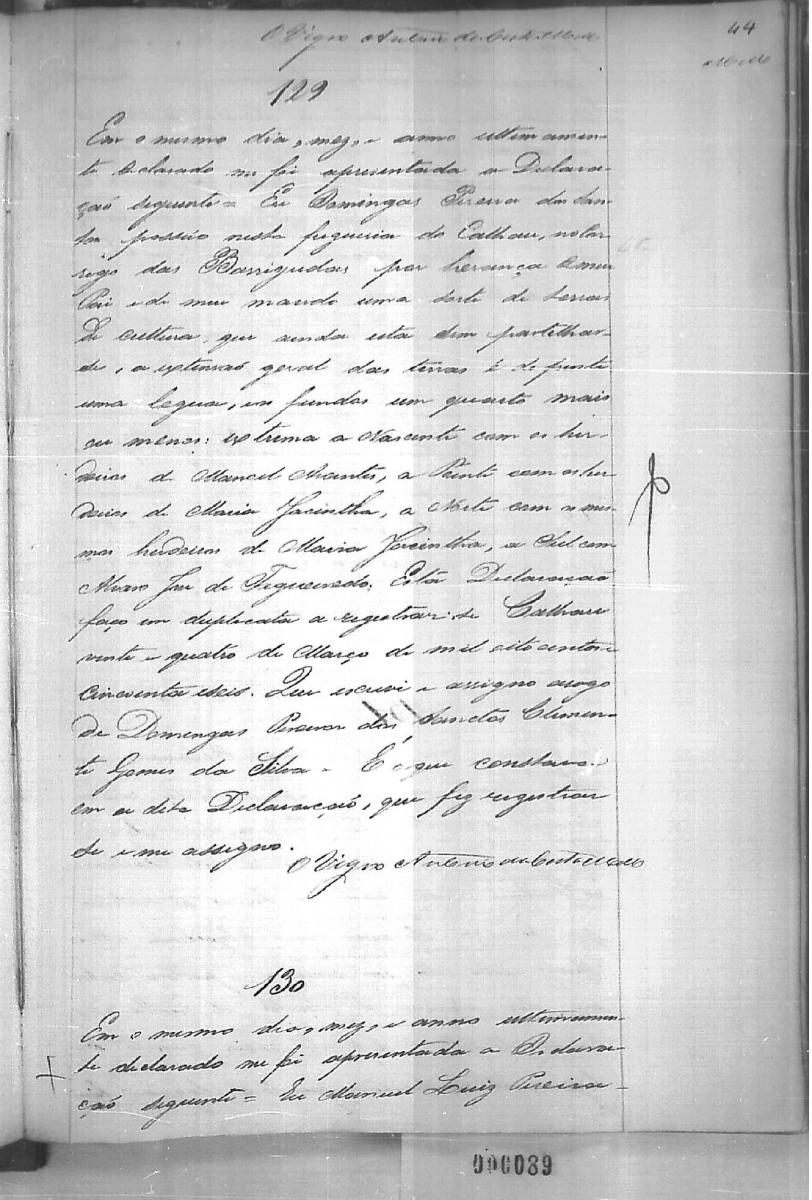 O Vigro Antonio da Costa Mello
44
Mello
129
Em o mesmo dia, mez, e anno ultimamen-
te declarado me foi apresentada a Declara-
çaõ seguinte = Eu Domingas Pereira dos San-
tos possúo nesta freguesia do Calhau, no Cor-
rego das Barrigudas por herança de meu
Pai e de meu marido uma sorte de terras
de cultura, que ainda está sem partilhar-
se, a extensaõ geral das terras é de frente
uma legua, e os fundos um quarto mais
ou menos: extrema a Nascente com os her-
deiros de Manoel Arantes, a Poente com os her-
deiros de Maria Jacintha, a Norte com os mes-
mos herdeiros de Maria Jacintha, a Sul com
Alvaro Jose de Figueiredo. Esta Declaraçaõ
faço em duplicata a registrar-se Calhau
vinte e quatro de Março de mil oito centos e
cincoenta e seis. Que escrevi e assigno a rogo
de Domingas Pereira dos Sanctos Clemen-
te Gomes da Silva = E o que constava
em a dita Declaraçaõ, que fiz registrar
se e me assigno.
O Vigro Antonio da Costa Mello
130
Em o mesmo dia, mez, e anno ultimamen-
te declarado me foi apresentada a Declara-
çaõ seguinte = Eu Manuel Luiz Pereira-
000089